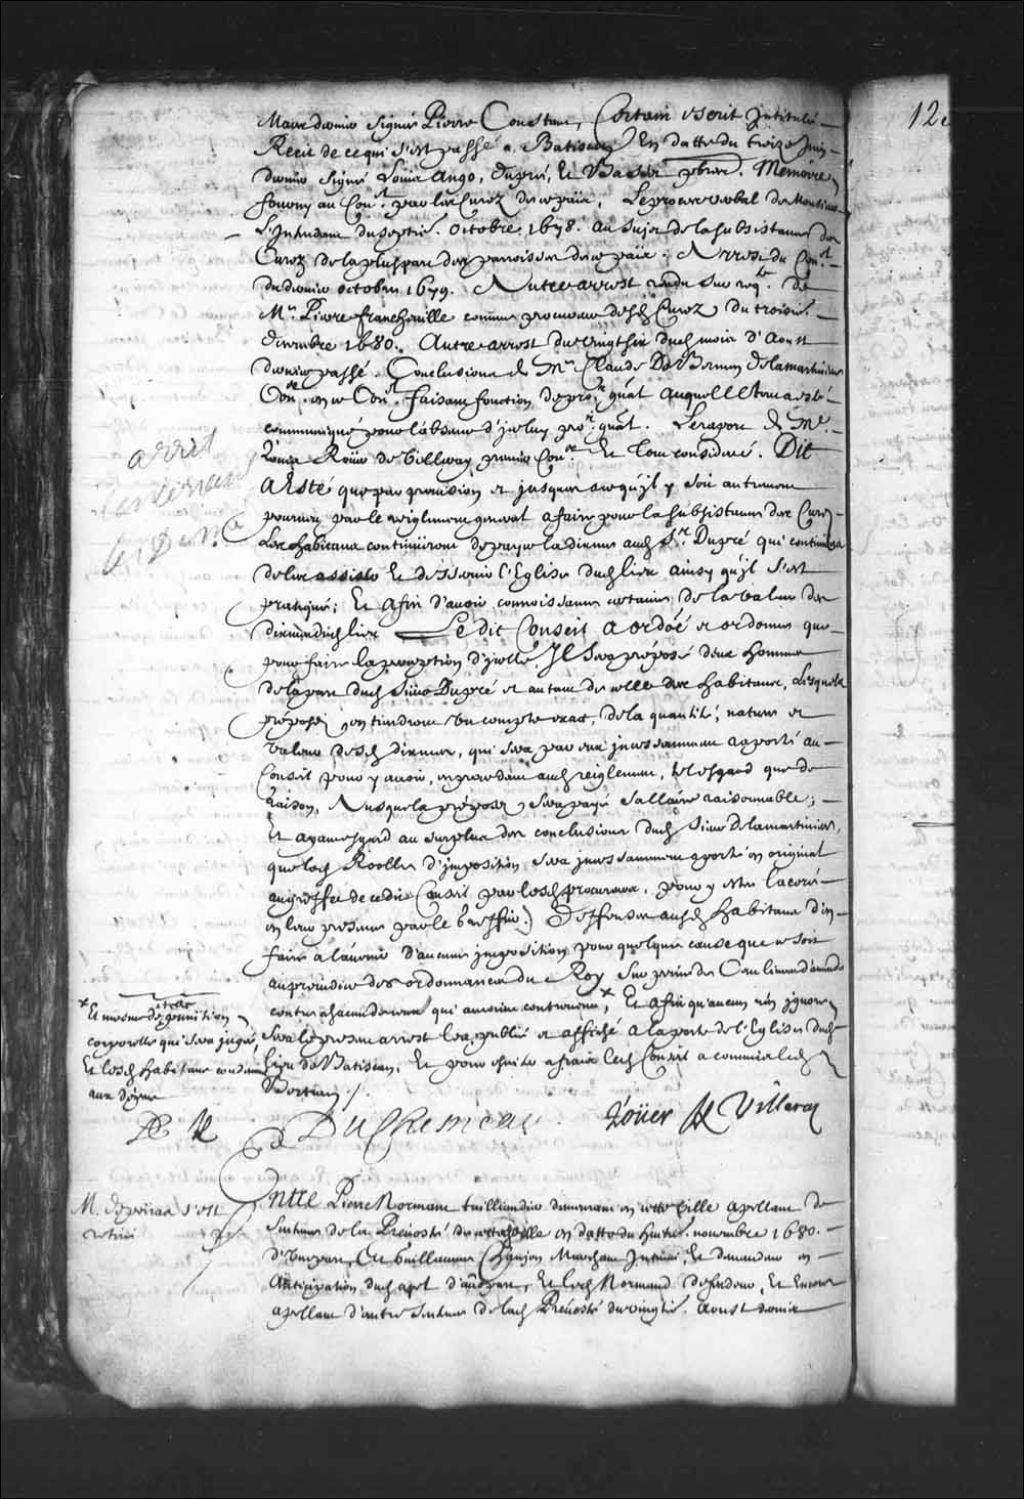 Mars dernier signée Pierre Constant, Certain escrit Intitulé
Recit de ce qui s'est passé a Batiscan En datte du treize Juin
dernier signé Louis Ango, Dupré, et
fourny au Conr. par les Curez de ce païs, Le procez verbal de Monsieur
L'Intendant du septie. Octobre 1678. au sujet de la subsistance des
Curez de la pluspart des parroisses de ce païs; Arrest du Conel.
du dernier octobre 1679. Autre arrest rendu sur reqte. de
Mre. Pierre francheville comme procureur desd. Curez du troisie.
decembre 1680. Autre arrest du vingt six dud. mois d'Aoust
dernier passé. Conclusions de Me Claude De Bermen de la martiniere
Conr. en ce Conel. faisant fonction de pror. gñal auquel le tout a esté
communiqué pour l'absence d'iceluy pror. gñal. Le raport de Me.
Loüis Roüer de Villeray premier Conr. Et tout consideré. Dit
A esté que par provision et jusques a ce qu'il y soit autrement
pourveu par le reiglement general a faire pour la subsistance des Curez
Les habitans continüeront de payer la dixme aud. Sr. Dupré qui continuera
de les assister et desservir l'Eglise dud. lieu ainsy qu'il s'est
pratiqué; Et afin d'avoir connoissance certaine de la valeur des
dixmes dud. lieu Ledit Conseil a ordoé et ordonne que
pour faire la perception d'icelle, Il sera preposé deux hommes
de la part dud. Sieur Dupré et autant de celle des habitans, Lesquels
préposez en tiendront un compte exact, de la quantité, nature et
valeur desd. dixmes, qui sera par eux incessamment aporté au
Conseil pour y avoir, en procedant aud. reiglement, tel esgard que de
raison, Ausquels préposez sera payé sallaire raisonnable;
Et ayant esgard au surplus des conclusions dud. Sieur de la martiniere,
que les Roolles d'imposition sera incessamment aporté en original
au greffe de cedit Conseil par lesd. procureurs, pour y estre lacéré
en leur presence par le Greffier. Deffenses ausd. habitans d'en
faire a l'avenir d'aucune imposition pour quelque cause que ce soit
au prejudice des ordonnances du Roy Sur peine de Cent livres d'amande
contre chacun de ceux qui auroient contrevenu x, Et afin qu'aucun n'en ignore
Sera le present arrest leu, publié et affiché a la porte de l'Eglise dud.
lieu de Batiscan, Et pour ce faire led. Conseil a commis led.
x Et mesme de punition
corporelle qui sera jugée,
Et lesd. habitans condamnez
aux despens
DuChesneau. Roüer de Villeray
M. Depeiras s'est
retiré
Entre Pierre Normand taillandier demeurant en cette ville apellant de
Sentence de la Prévosté de cette ville en datte du huitie. novembre 1680.
d'une part, Et Guillaume Chanjon Marchand Intimé, Et demandeur en
Anticipation dud. apel d'autre part, Et led. Normand defendeur, Et Encore
apellant d'autre Sentence de lad. Prévosté du vingtie. Aoust dernier